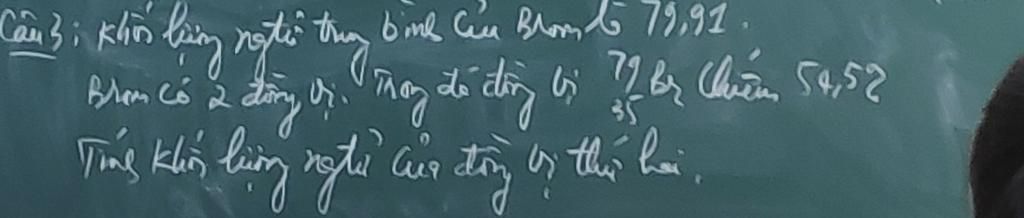 Câu 3: Khối lượng ngtử trung bình của Brom là 79,91.
Brom có 2 đồng vị. Trong đó đồng vị ⁷⁹₃₅Br chiếm 54,5%
Tính khối lượng ngtử của đồng vị thứ hai.